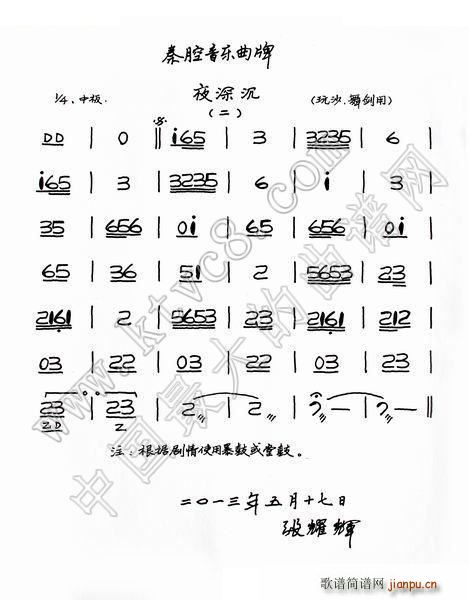 秦腔音乐曲牌
夜深沉
¼、中板、 (二) (玩沙、舞剑用)
DD | 0 ‖ i65 | 3 | 3235 | 6 |
i65 | 3 | 3235 | 6 | i | 3 |
35 | 656 | 0i | 65 | 656 | 0i |
65 | 36 | 51 | 2 | 5653 | 23 |
2161 | 2 | 5653 | 23 | 2161 | 212 |
03 | 22 | 03 | 22 | 03 | 22 |
23 | 23 | 2 | 2 | 2 — | 2 — ‖
ZD Z
注：根据剧情使用暴鼓或堂鼓。
二〇一三年五月十七日
张耀辉
www.ktvc8.com
中国最大的曲谱网
歌谱简谱网
jianpu.cn